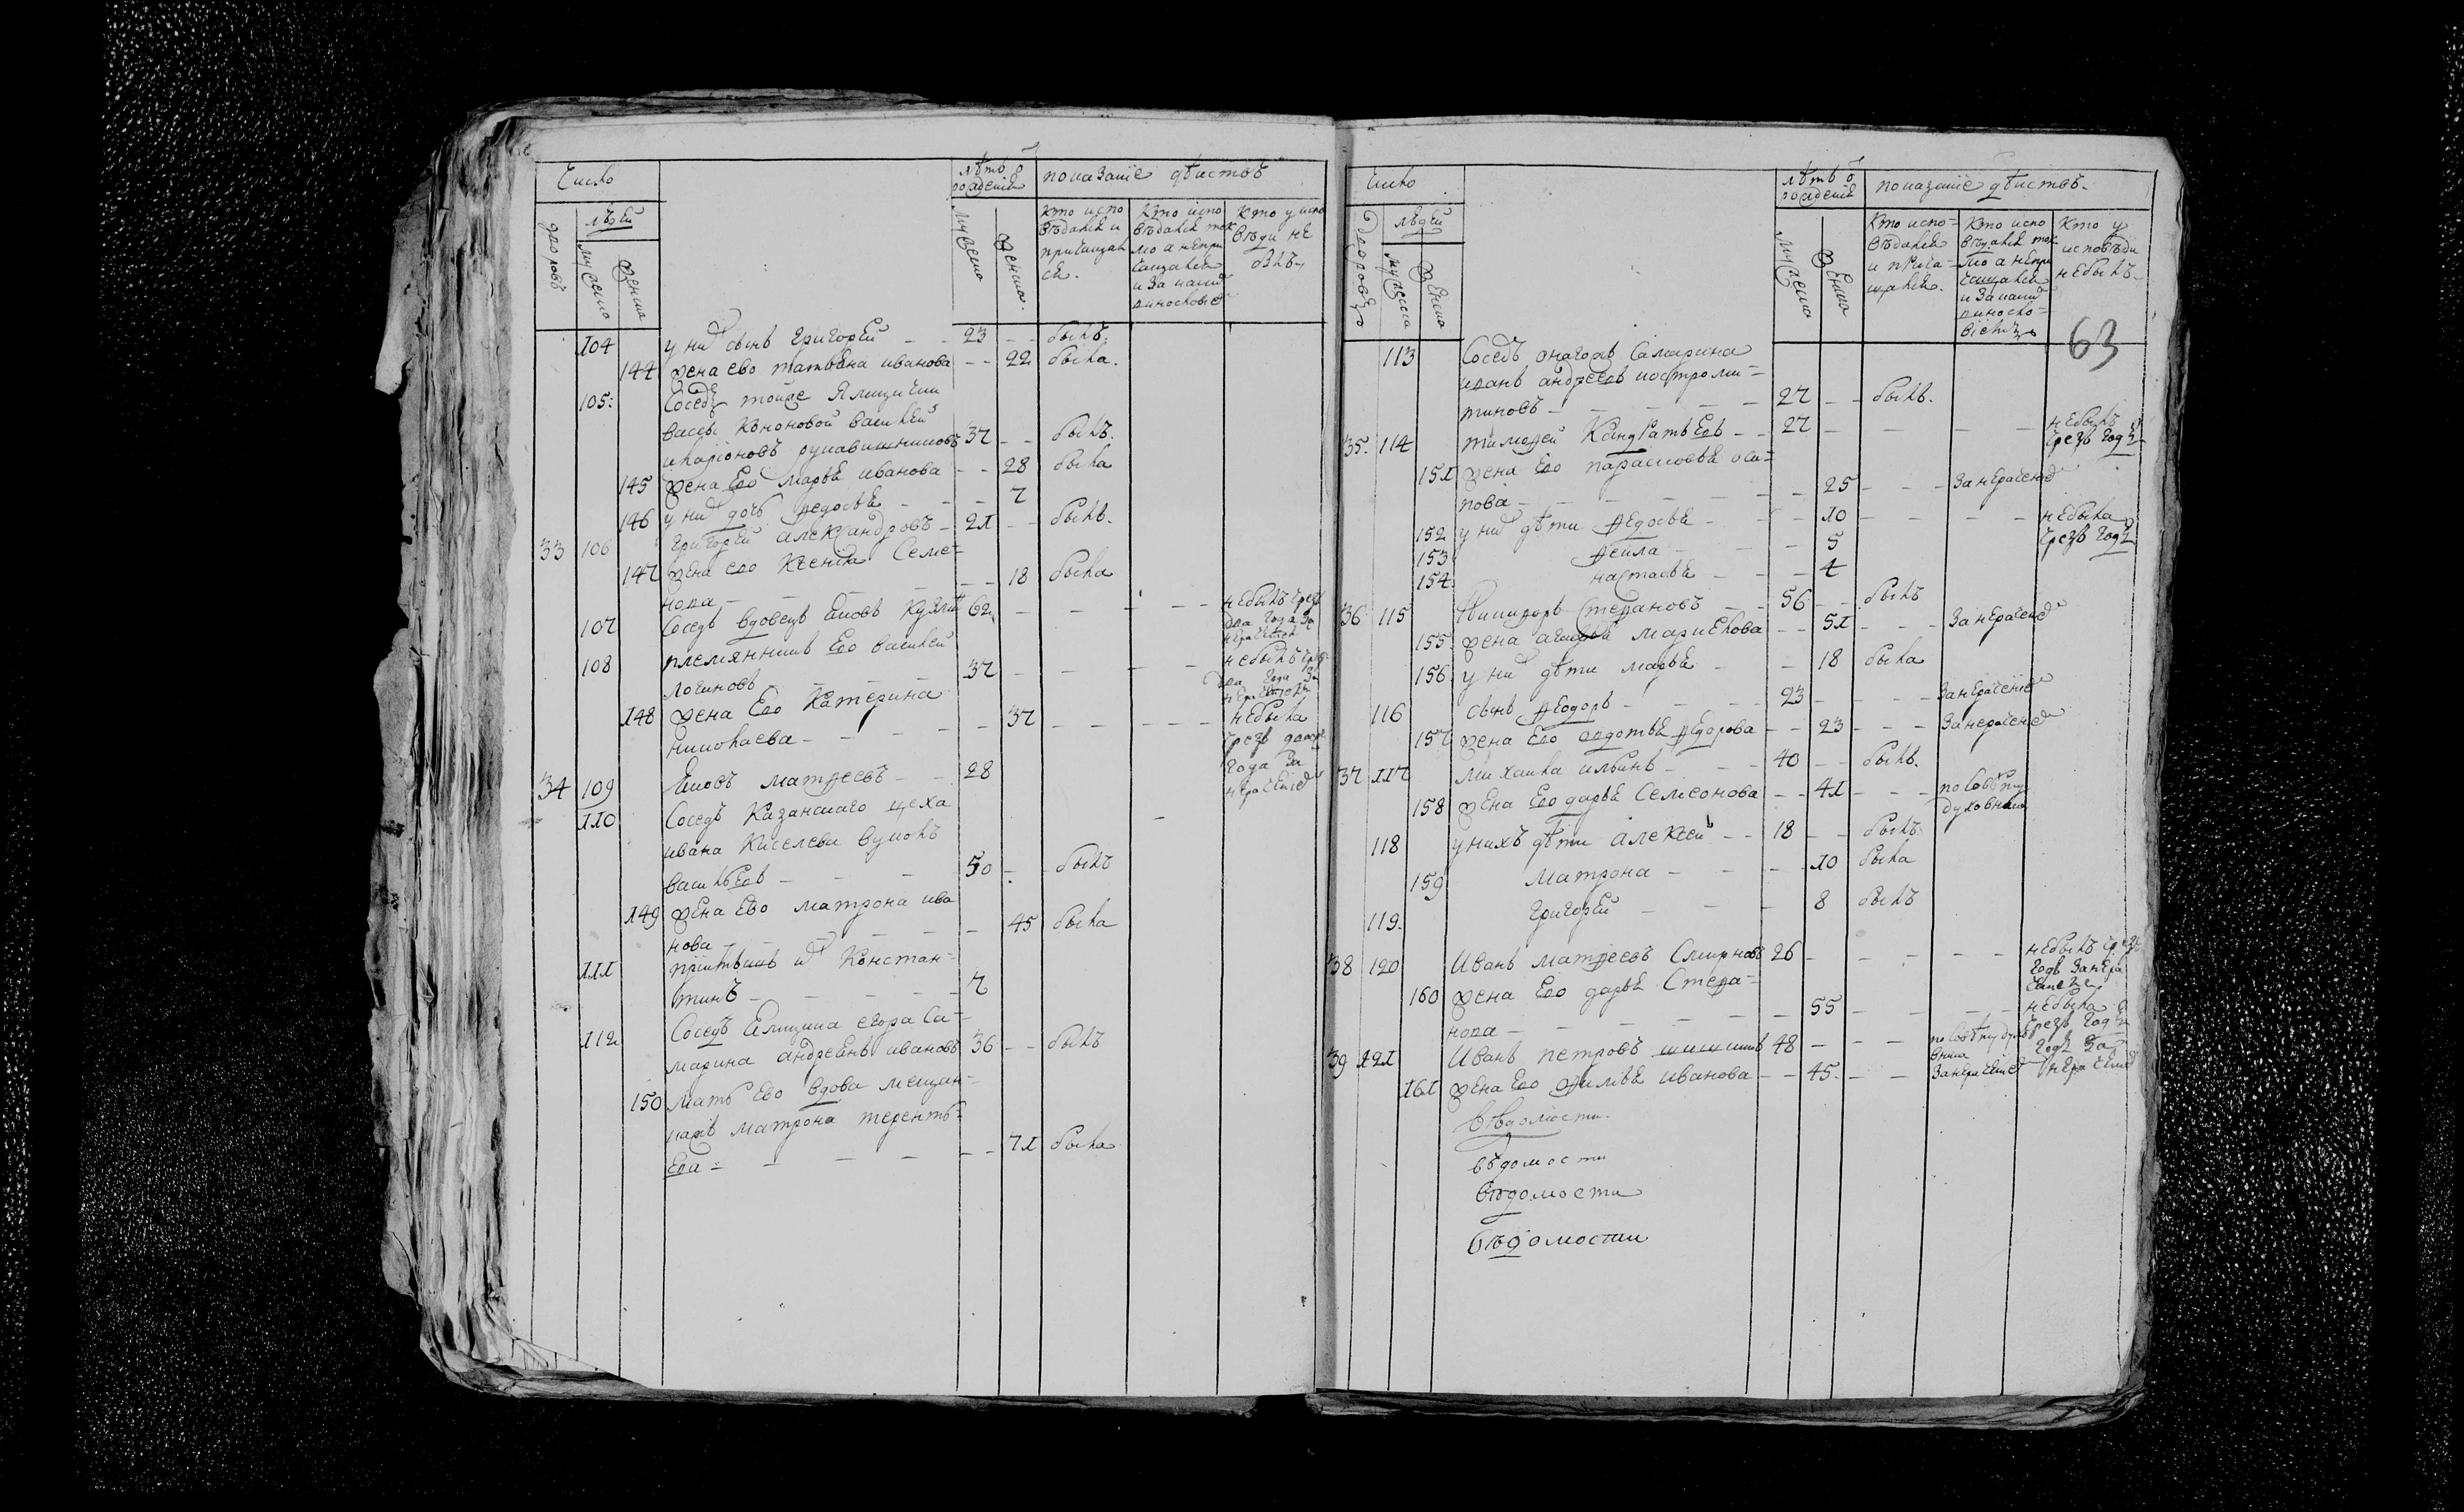 Число
лѣтъ ѿ рожденія
показаніе дѣиствъ
дворовъ
людей
мужеска
женска
мужеска
женска
кто испо
вѣдался и
причащал
ся.
кто испо
вѣдался ток
мо а непри
чащался
и за каки
винословіе
кто у испо
вѣди не
былъ
104 у нихъ сынъ григорей 23 былъ.
144 жена ево татьяна иванова 22 была.
105: Соседъ тоиже Ямщички
вассы Кононовой василей
иларіоновъ рукавишниковъ 37 былъ.
145 жена Ево марья иванова 28 была
146 у нихъ дочь федосья 7
33 106 григорей александровъ 21 былъ.
147 жена ево Ксенія Семе=
нова 18 была
107 Соседъ вдовецъ яковъ кузми 62 небылъ чрез
два года за
нераченіе
108 племянникъ Ево василей
логиновъ 37 небылъ чрез
два года за
нераченіе
148 жена Ево Катерина
николаева 37 небыла
чрезъ два
года за
нераченіе
34 109 Яковъ матфеевъ 28
110 Соседъ Казанскаго цеха
ивана Киселева вуколъ
васильевъ 50 былъ
149 жена Ево матрона ива
нова 45 была
111 пріемышъ их Констан=
тинъ 7
112 Соседъ Ямщика егора Са=
марина андреянъ ивановъ 36 былъ
150 мать Ево вдова мещан=
каяъ матрона теренть=
Ева 71 была
Число
лѣтъ ѿ рожденія
показаніе дѣиствъ
дворовъ
людей
мужеска
женска
мужеска
женска
кто испо=
вѣдался
и прича=
щался.
кто испо
вѣдался ток
мо а непри
чащался
и за каки
виносло=
віемъ
кто у
исповѣди
небылъ
63
113 Соседъ онагожъ Самарина
иванъ андреевъ костроми=
тиновъ 27 былъ.
35. 114 тимофей Кандратьевъ 27 небылъ
чрезъ годъ
151 жена Ево парасковья оси=
пова 25 занераченіе
152 у нихъ дѣти федосья 10 небыла
чрезъ годъ
153 фекла 5
154 настасья 4
36 115 Никифоръ Степановъ 56 былъ
155. жена агафья маркелова 51 занераченіе
156 у нихъ дѣти марья 18 была
116 сынъ федоръ 23 занераченіе
157 жена Ево авдотья федорова 23 занераченіе
37 117 михаила ильинъ 40 былъ.
158 жена Ево дарья Семеонова 41 по совѣту
духовника
118 унихъ дѣти алексей 18 былъ
159 матрона 10 была
119. григорей 8 былъ
38 120 Иванъ матфеевъ Смирновъ 26 небылъ чрезъ
годъ занера
ченіемъ
160 жена Ево дарья Степа=
нова 55 небыла
чрезъ годъ
39 121 Иванъ петровъ шишкинъ 48 по совѣту духо
вника
годъ за
161 жена Ево филія иванова 45. занераченіе нераченіе
вѣдомости
вѣдомости
вѣдомости
вѣдомости